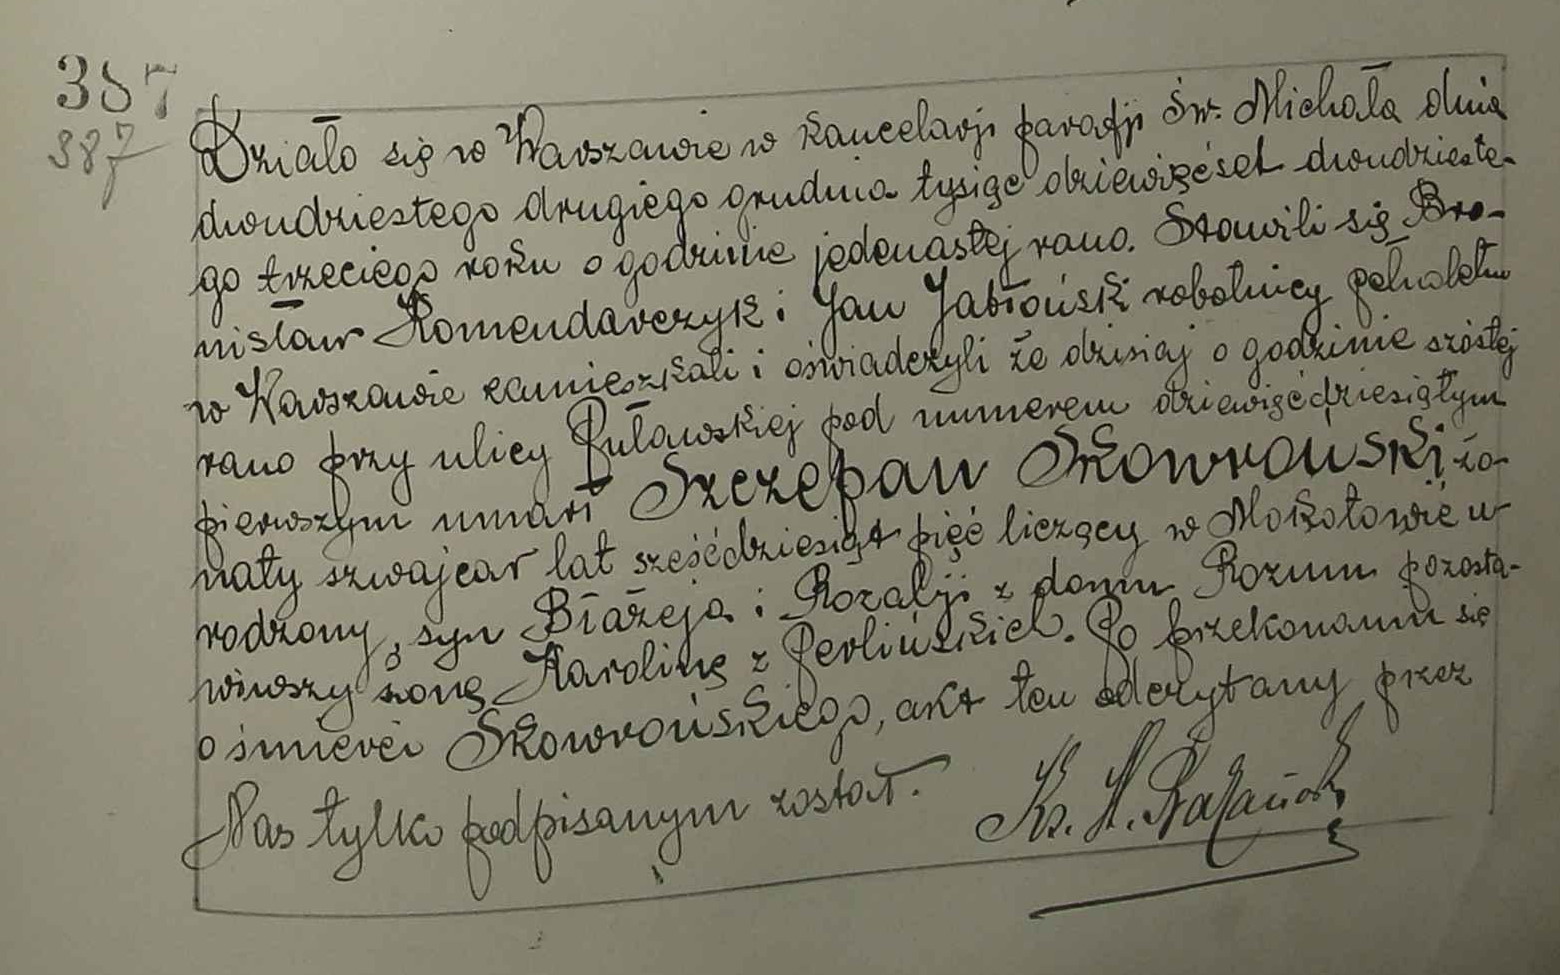 387
387
Działo się w Warszawie w kancelarji parafji Św. Michała dnia
dwudziestego drugiego grudnia tysiąc dziewięćset dwudzieste-
go trzeciego roku o godzinie jedenastej rano. Stawili się Bro-
nisław Komendarczyk i Jan Jabłoński robotnicy pełnoletni
w Warszawie zamieszkali i oświadczyli że dzisiaj o godzinie szóstej
rano przy ulicy Puławskiej pod numerem dziewięćdziesiątym
pierwszym umarł Szczepan Skowroński żo-
naty szwajcar lat sześćdziesiąt pięć liczący w Mokotowie u-
rodzony, syn Błażeja i Rozalji z domu Rozum pozosta-
wiwszy żonę Karolinę z Perlińskich. Po przekonaniu się
o śmierci Skowrońskiego, akt ten odczytany przez
Nas tylko podpisanym został.
Ks.